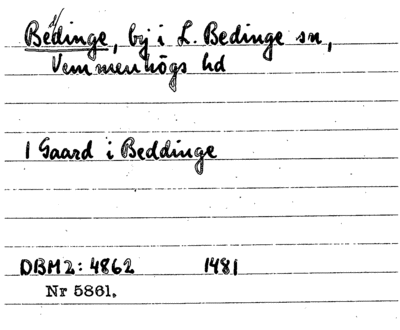 Bedinge, by i L. Bedinge sn,
Vemmenhögs hd
1 Gaard i Beddinge
DBM2: 4862 1481
Nr 5861.